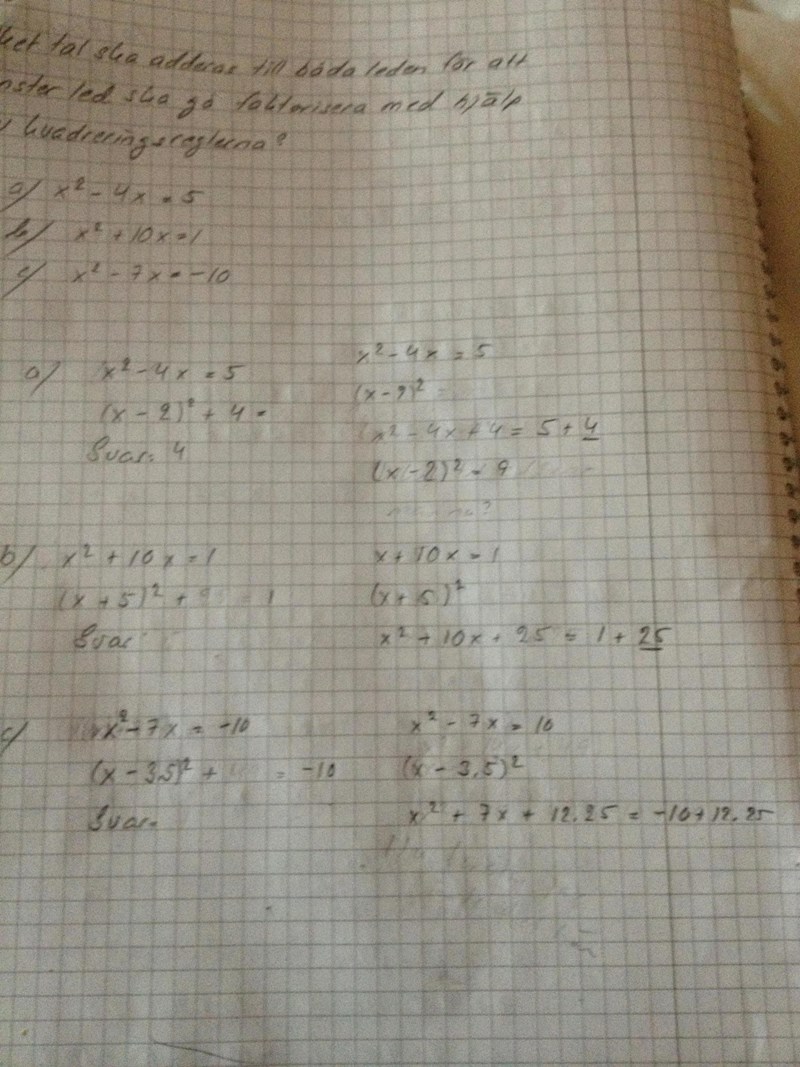 ket tal ska adderas till båda leden för att
nster led ska gå faktorisera med hjälp
v kvadreringsreglerna?
a) x² - 4x = 5
b) x² + 10x = 1
c) x² - 7x = -10
a) x² - 4x = 5
(x - 2)² + 4 =
Svar: 4
x² - 4x = 5
(x - 2)²
x² - 4x + 4 = 5 + 4
(x - 2)² = 9
b) x² + 10x = 1
(x + 5)² + = 1
Svar
x + 10x = 1
(x + 5)²
x² + 10x + 25 = 1 + 25
c) x² - 7x = -10
(x - 3,5)² + = -10
Svar:
x² - 7x = 10
(x - 3,5)²
x² + 7x + 12.25 = -10 + 12.25